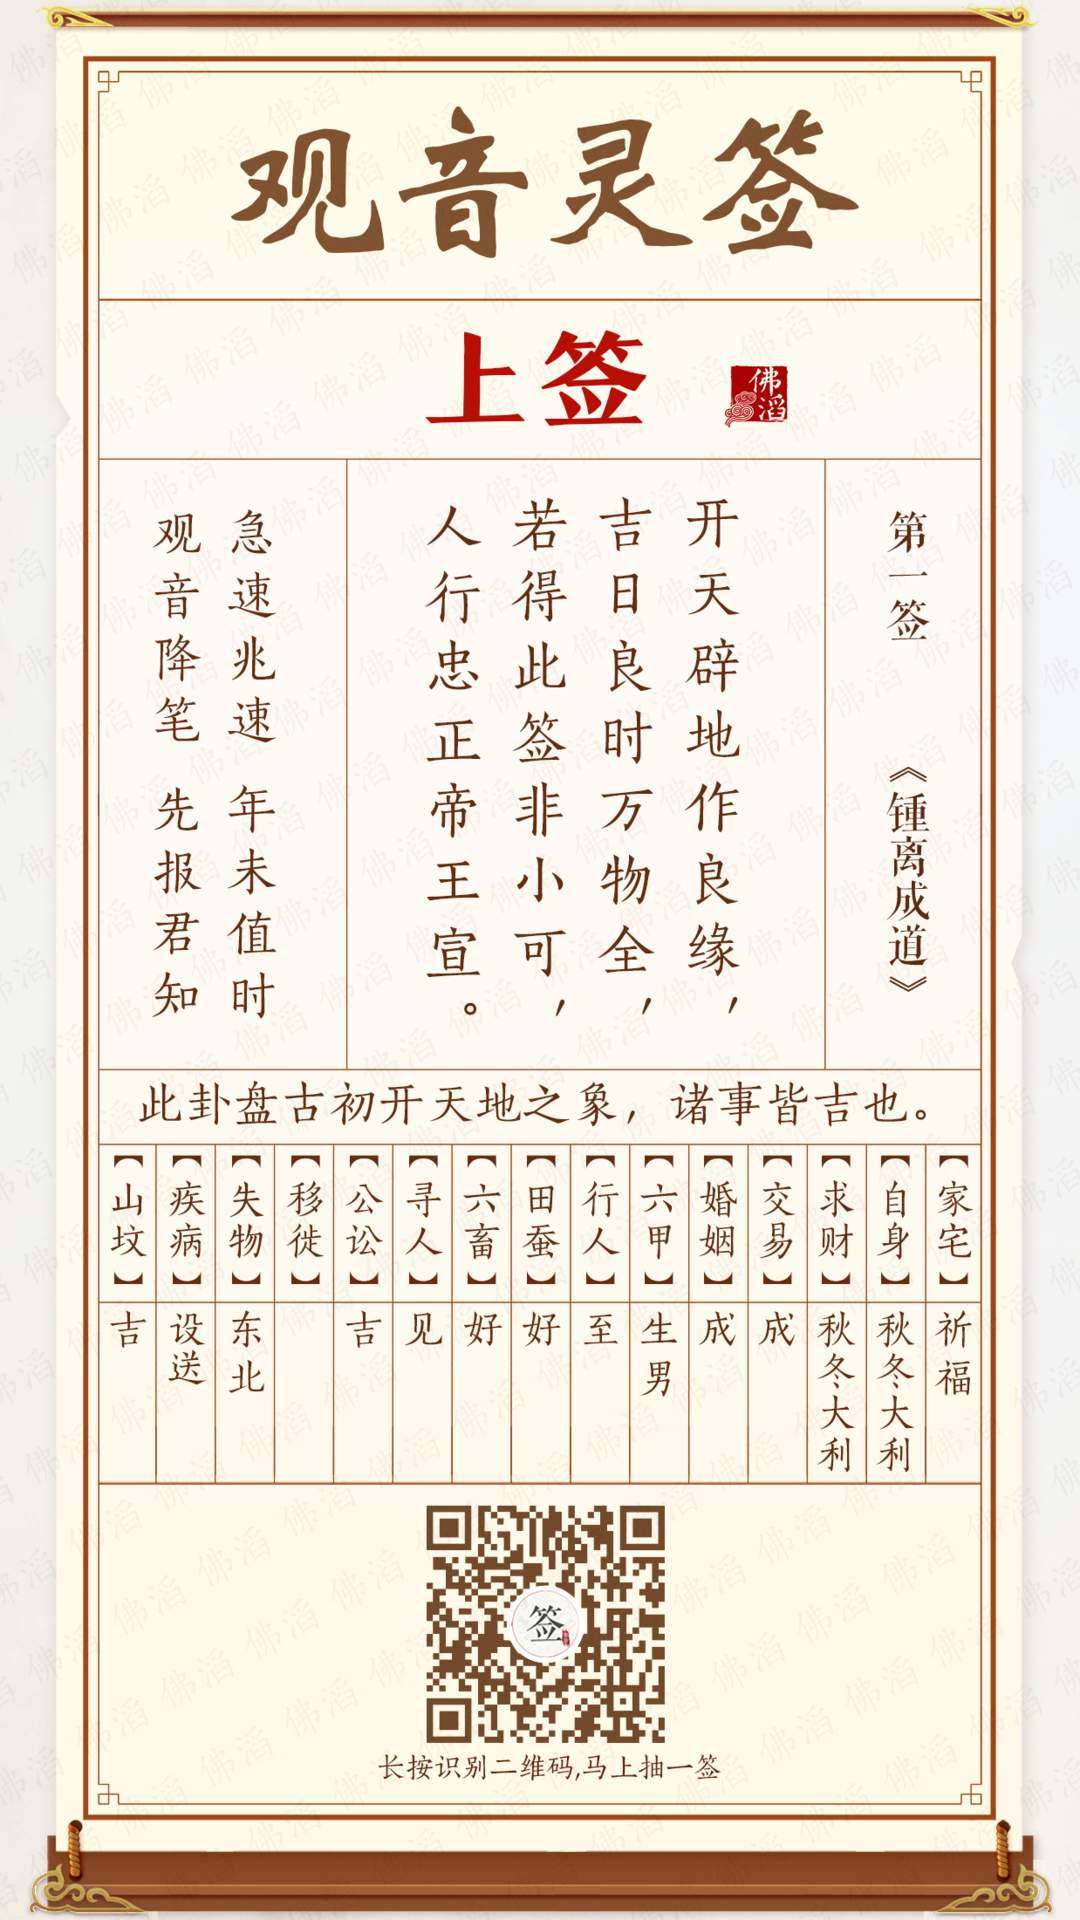 观音灵签
上签
佛滔
第一签 《锺离成道》
开天辟地作良缘，
吉日良时万物全，
若得此签非小可，
人行忠正帝王宣。
急速兆速 年未值时
观音降笔 先报君知
此卦盘古初开天地之象，诸事皆吉也。
【家宅】 祈福
【自身】 秋冬大利
【求财】 秋冬大利
【交易】 成
【婚姻】 成
【六甲】 生男
【行人】 至
【田蚕】 好
【六畜】 好
【寻人】 见
【公讼】 吉
【移徙】
【失物】 东北
【疾病】 设送
【山坟】 吉
签
长按识别二维码,马上抽一签